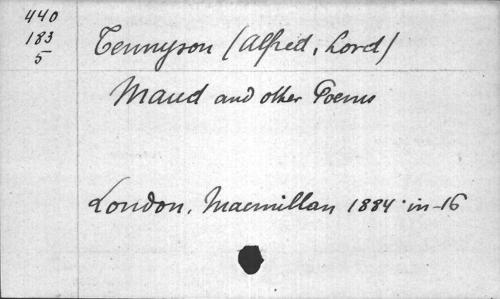 440
183
5
Tennyson (Alfred, Lord)
Maud and other Poems
London, Macmillan 1884 in-16